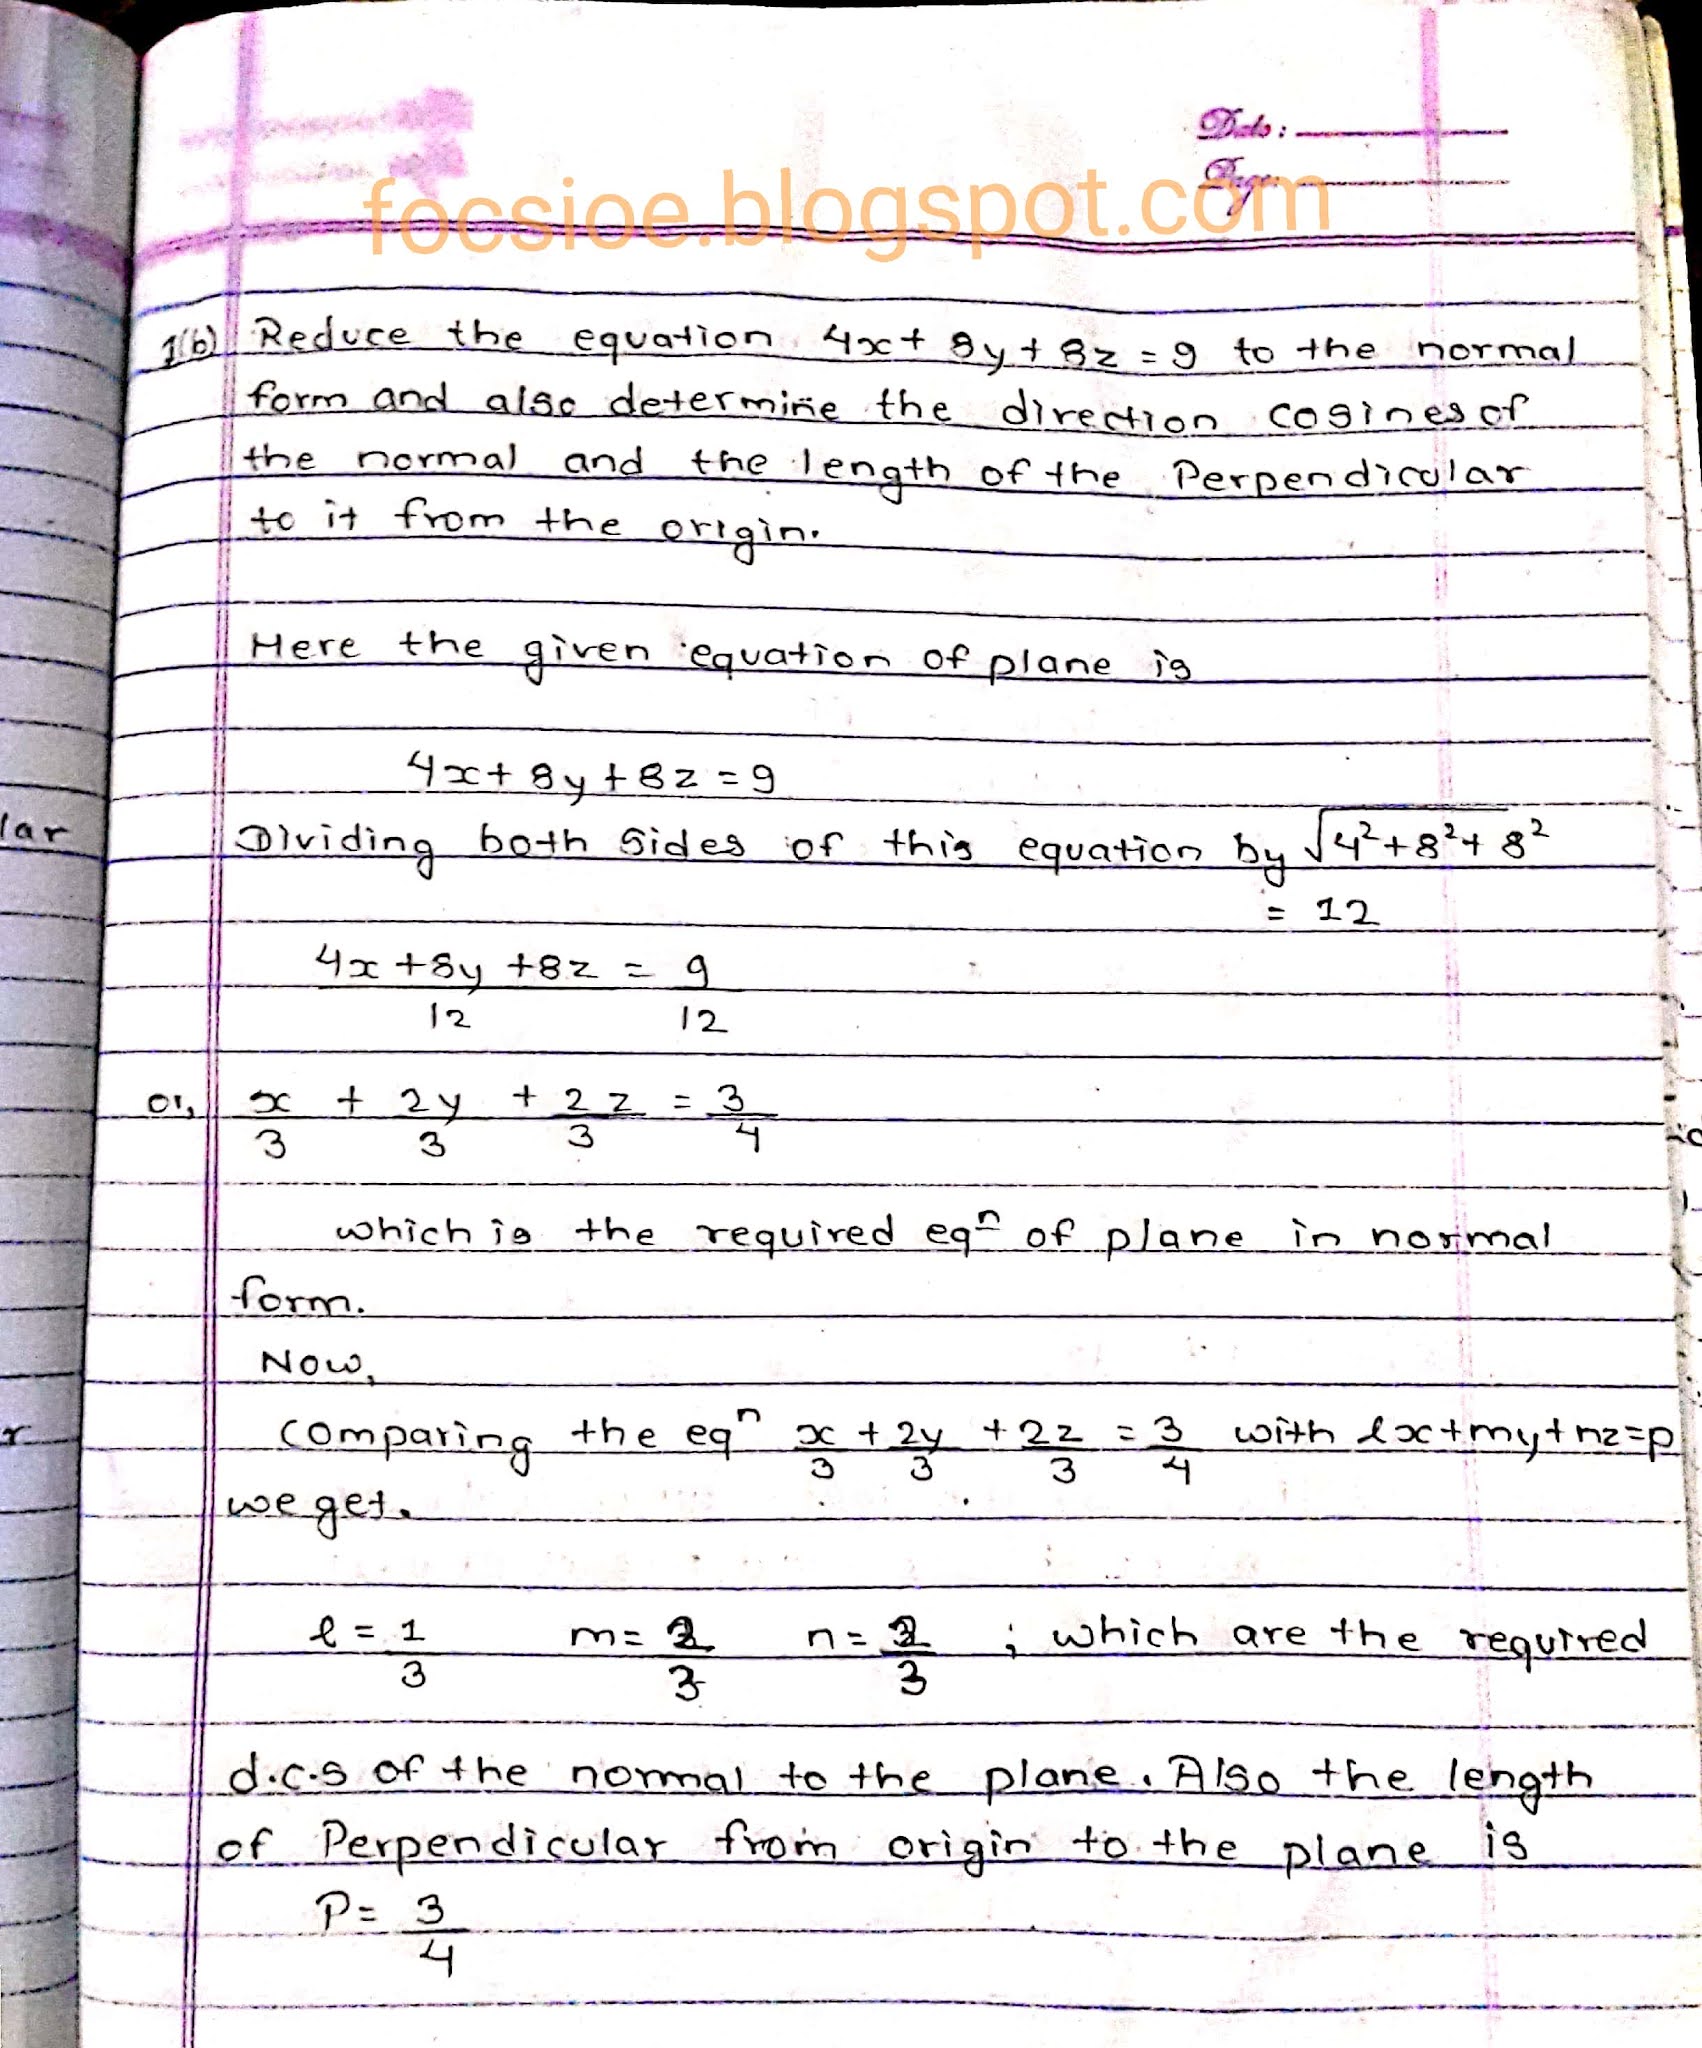 Date:
Page:
focsioe.blogspot.com
1(b) Reduce the equation 4x + 8y + 8z = 9 to the normal
form and also determine the direction cosines of
the normal and the length of the Perpendicular
to it from the origin.
Here the given equation of plane is
4x + 8y + 8z = 9
lar
Dividing both sides of this equation by √4² + 8² + 8²
= 12
4x + 8y + 8z = 9
12 12
or, x/3 + 2y/3 + 2z/3 = 3/4
which is the required eqⁿ of plane in normal
form.
Now,
r
Comparing the eqⁿ x/3 + 2y/3 + 2z/3 = 3/4 with lx + my + nz = p
we get.
l = 1/3 m = 2/3 n = 2/3 ; which are the required
d.c.s of the normal to the plane. Also the length
of Perpendicular from origin to the plane is
P = 3/4